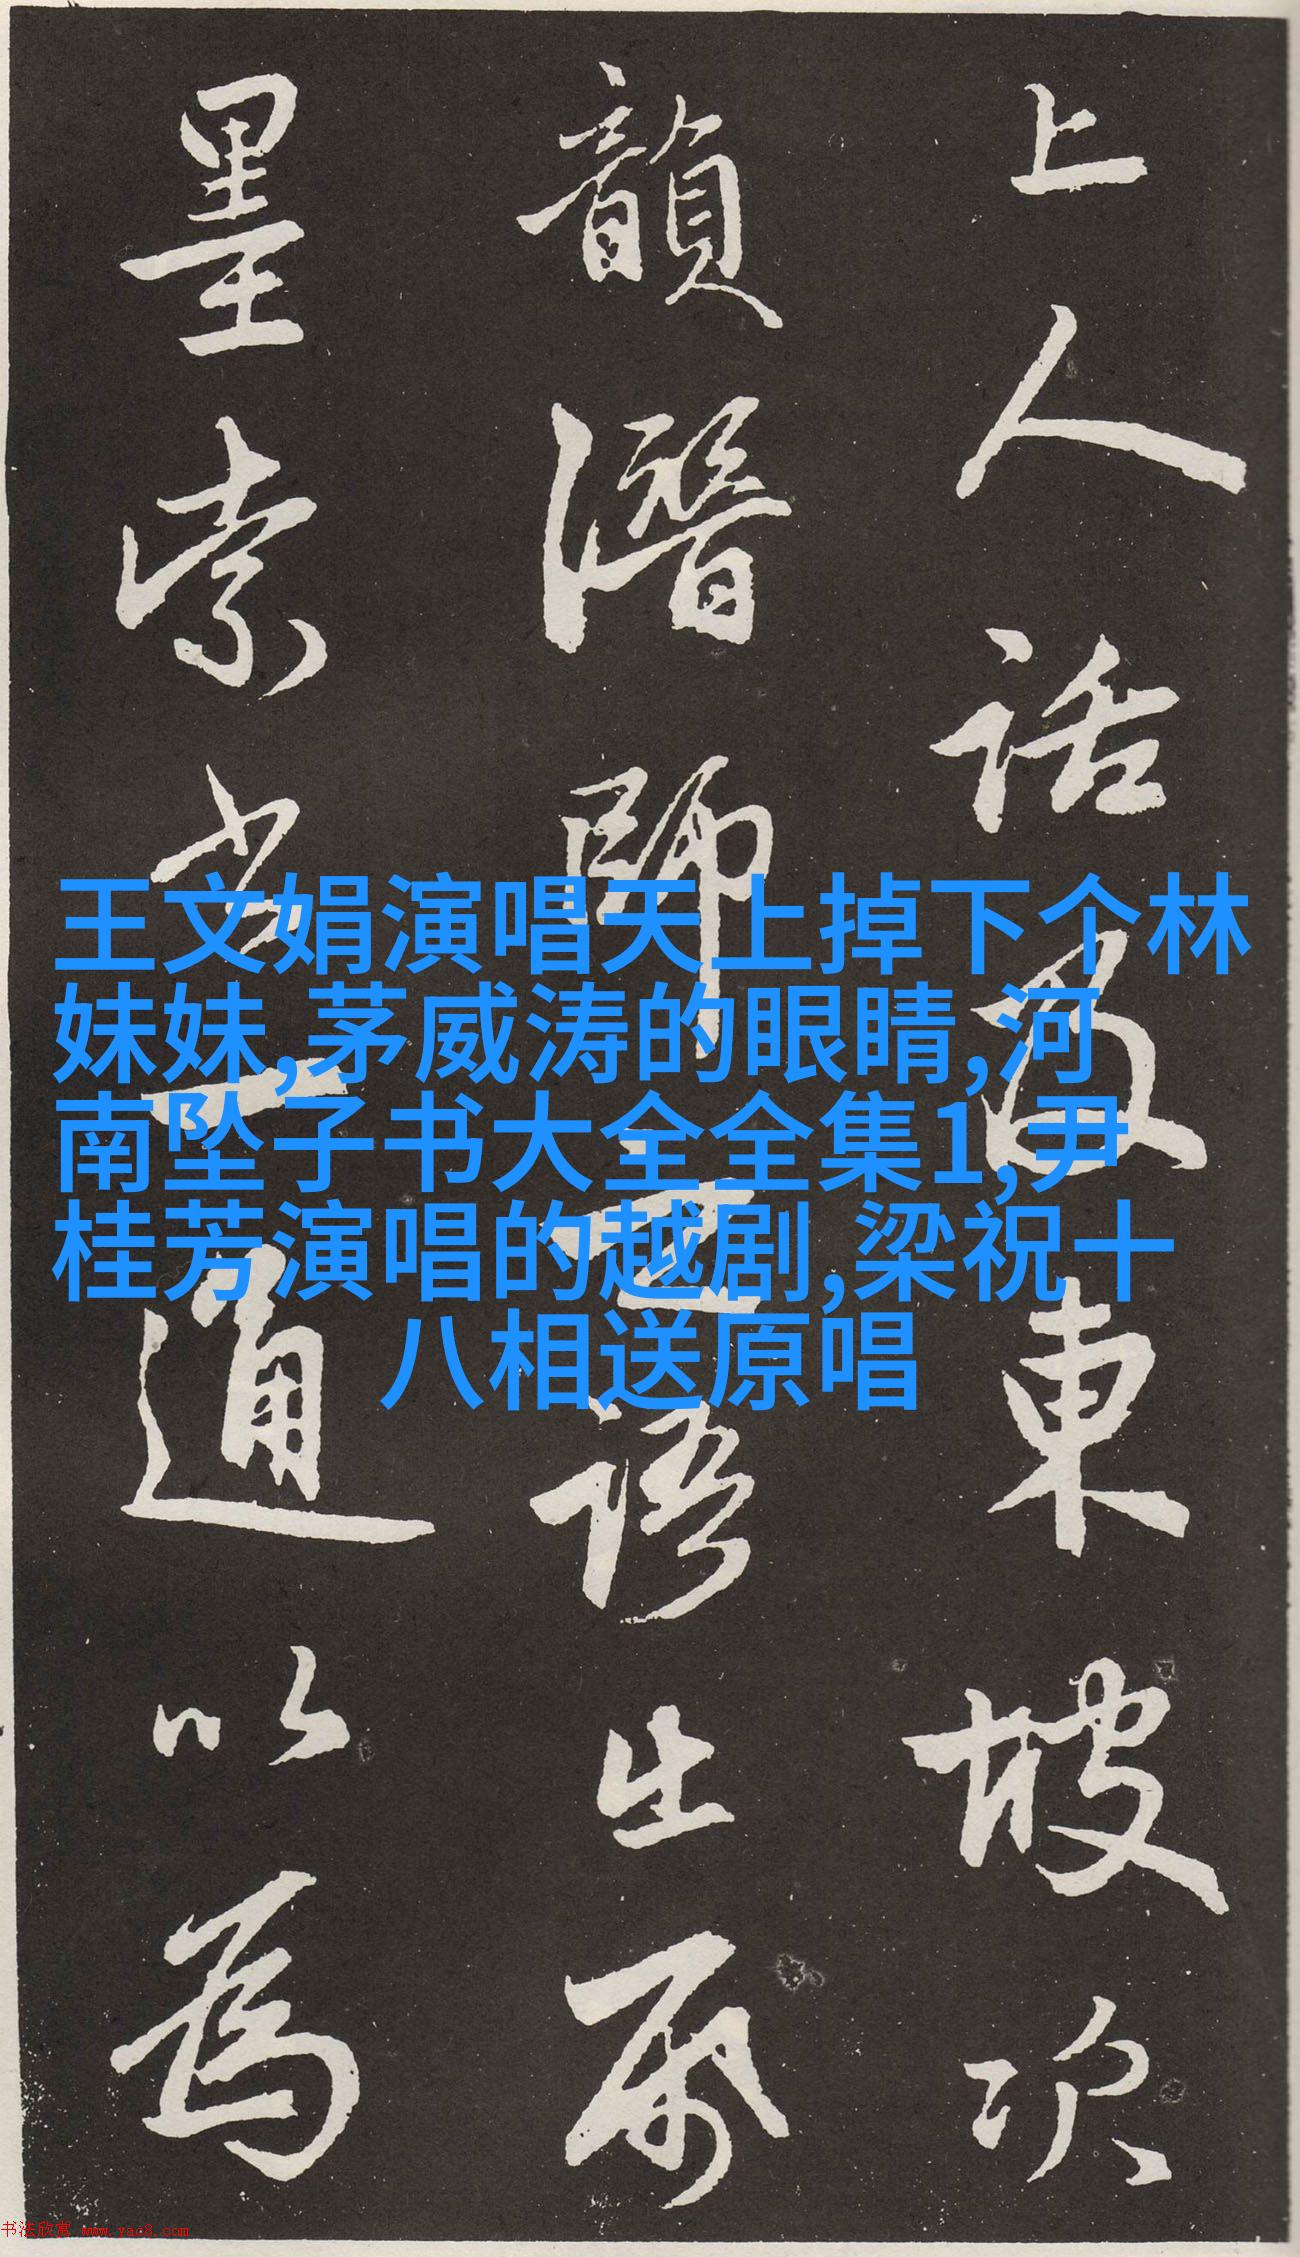 上人話及東坡次
韻潛師語出帋
墨索書一通以為
王文娟演唱天上掉下个林
妹妹,茅威涛的眼睛,河
南坠子书大全全集1,尹
桂芳演唱的越剧,梁祝十
八相送原唱
书法欣赏 www.yac8.com